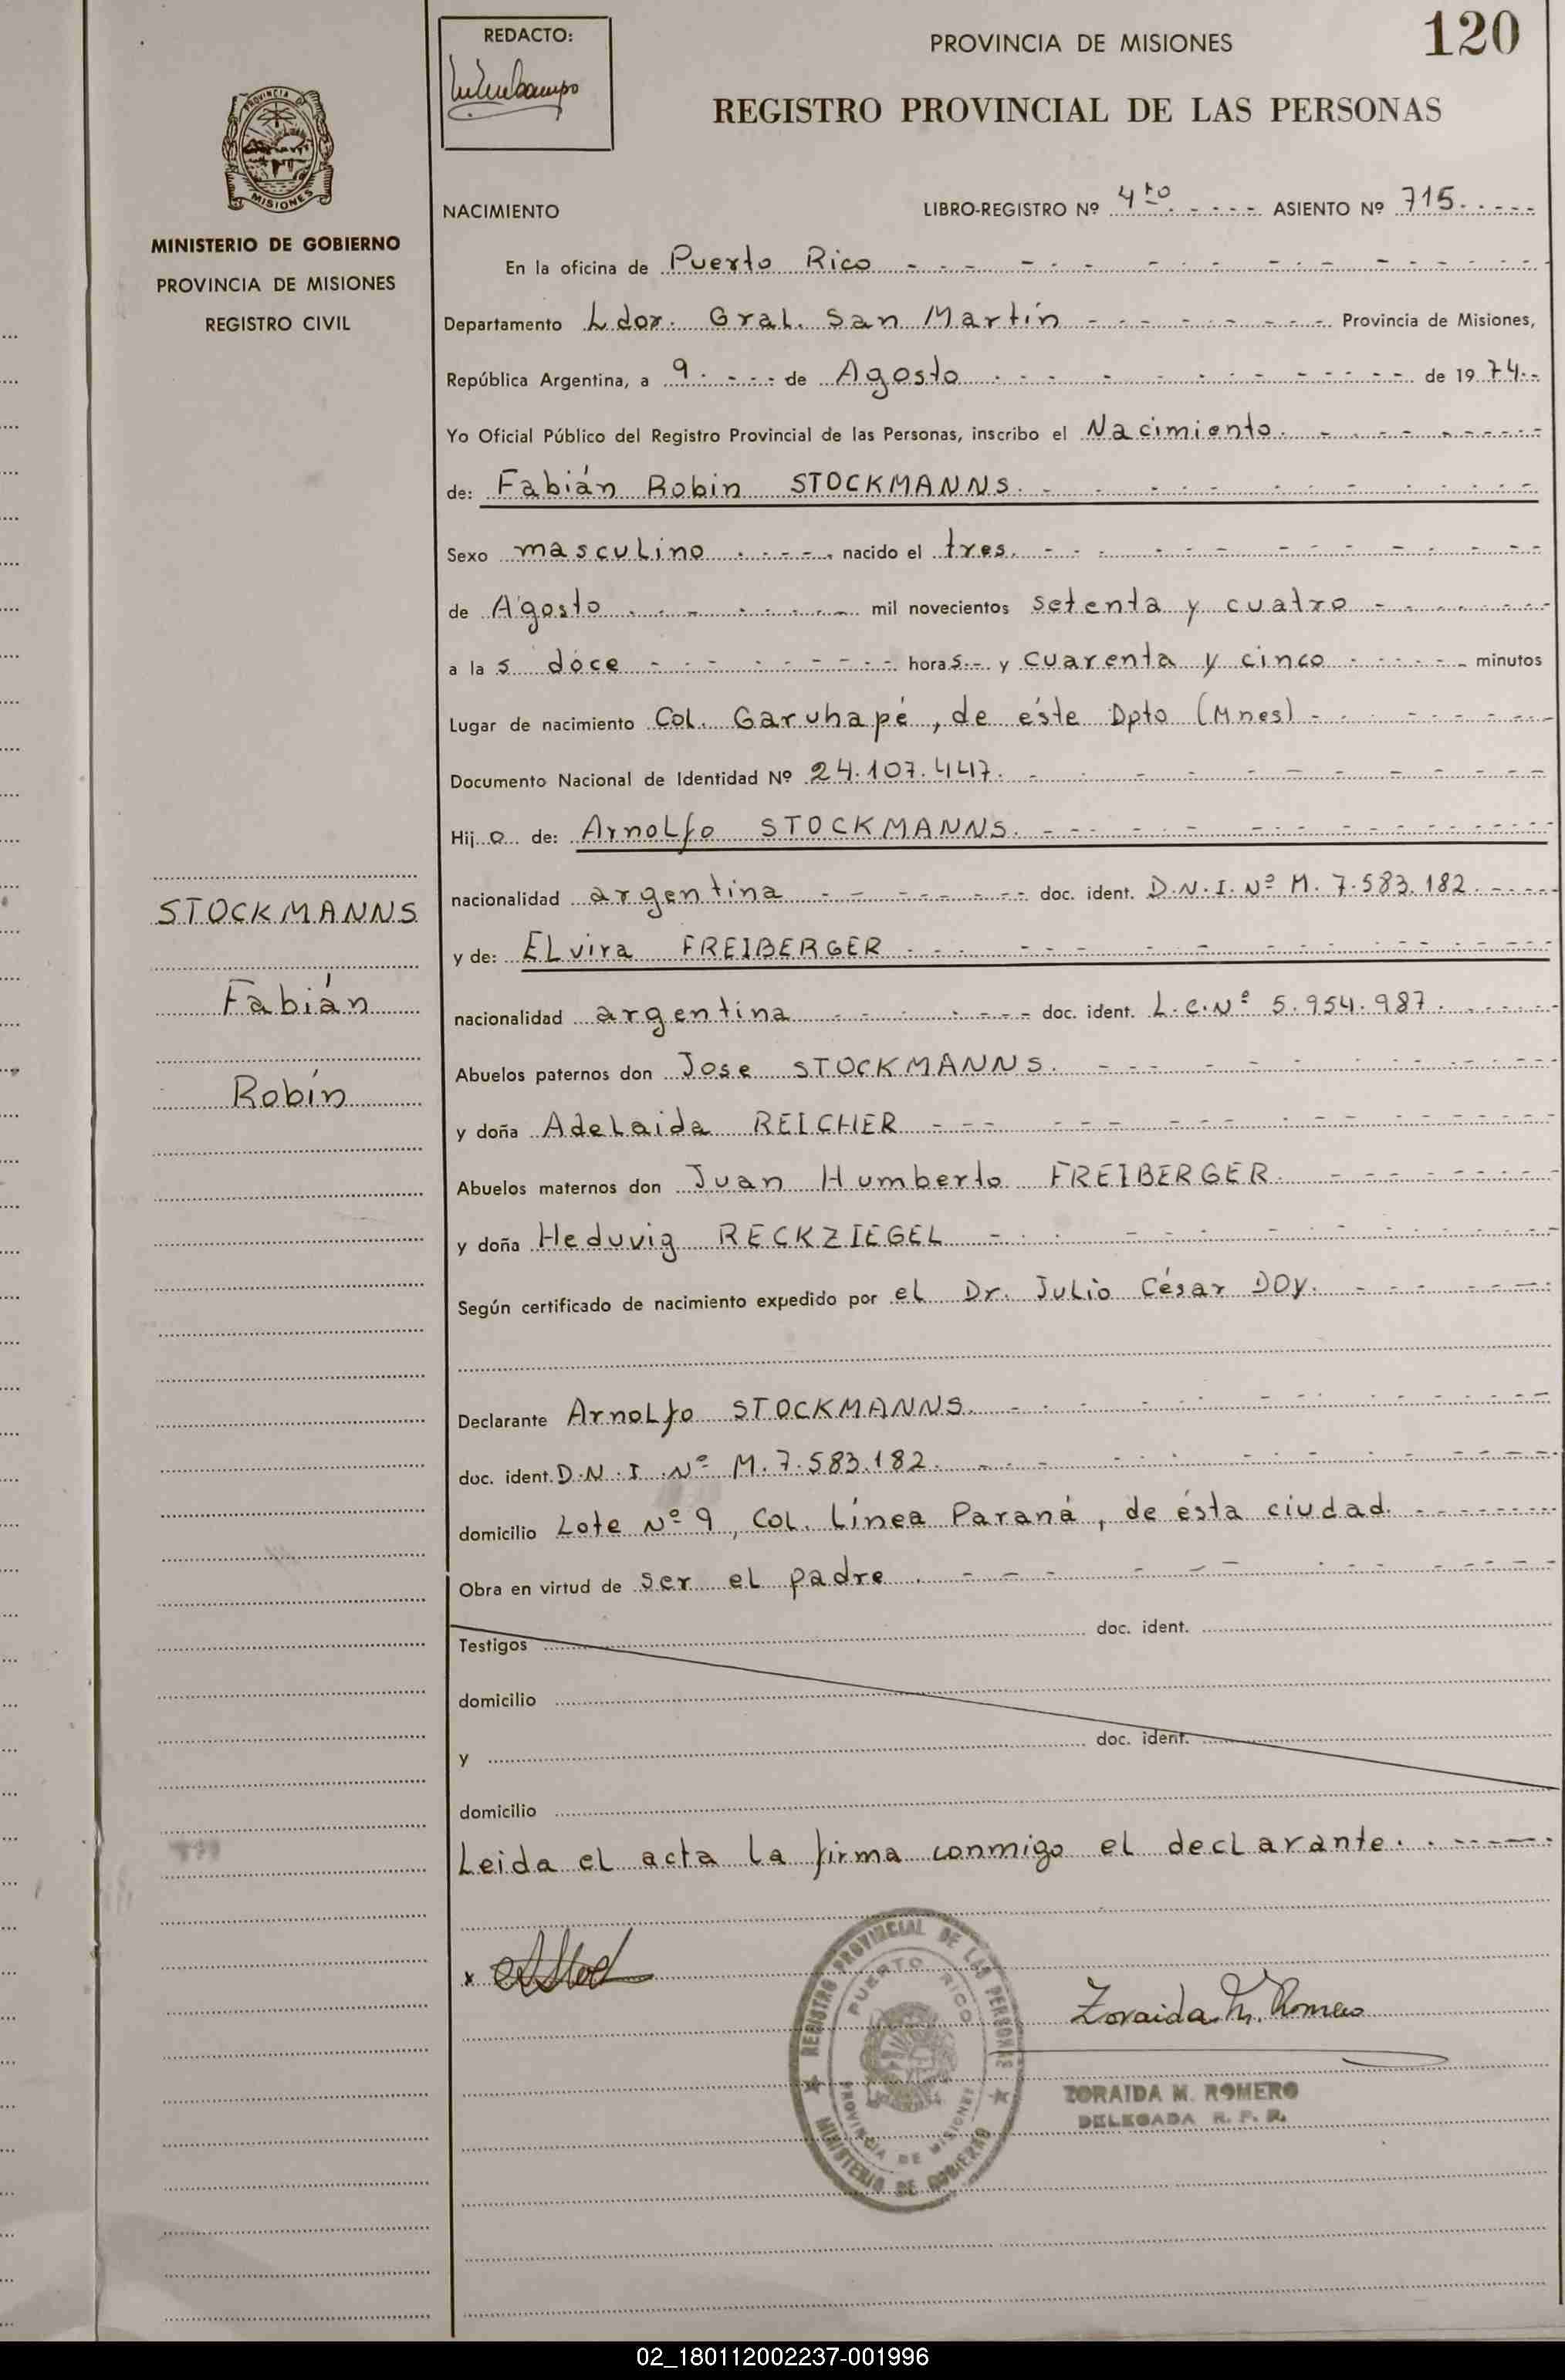 120
REDACTO:
PROVINCIA DE MISIONES
REGISTRO PROVINCIAL DE LAS PERSONAS
PROVINCIA DE
MISIONES
MINISTERIO DE GOBIERNO
PROVINCIA DE MISIONES
REGISTRO CIVIL
NACIMIENTO LIBRO-REGISTRO Nº 4to ASIENTO Nº 715
En la oficina de Puerto Rico
Departamento Ldor. Gral. San Martín Provincia de Misiones,
República Argentina, a 9 de Agosto de 1974
Yo Oficial Público del Registro Provincial de las Personas, inscribo el Nacimiento
de: Fabián Robin STOCKMANNS.
Sexo masculino nacido el tres
de Agosto mil novecientos setenta y cuatro
a las doce horas y cuarenta y cinco minutos
Lugar de nacimiento Col. Garuhapé, de éste Dpto (Mnes)
Documento Nacional de Identidad Nº 24.107.447.
Hijo de: Arnolfo STOCKMANNS.
nacionalidad argentina doc. ident. D.N.I. Nº M. 7.583.182
y de: Elvira FREIBERGER
nacionalidad argentina doc. ident. L.C. Nº 5.954.987
Abuelos paternos don Jose STOCKMANNS.
y doña Adelaida REICHER
Abuelos maternos don Juan Humberto FREIBERGER.
y doña Heduvig RECKZIEGEL
Según certificado de nacimiento expedido por el Dr. Julio César DOY.
Declarante Arnolfo STOCKMANNS.
doc. ident. D.N.I. Nº M. 7.583.182.
domicilio Lote Nº 9, Col. Línea Paraná, de ésta ciudad.
Obra en virtud de ser el padre.
Testigos doc. ident.
domicilio
y doc. ident.
domicilio
Leida el acta la firma conmigo el declarante.
STOCKMANNS
Fabián
Robín
x
REGISTRO PROVINCIAL DE LAS PERSONAS
PUERTO RICO
PROVINCIA DE MISIONES
MINISTERIO DE GOBIERNO
Zoraida M. Romero
ZORAIDA M. ROMERO
DELEGADA R. P. P.
02_180112002237-001996